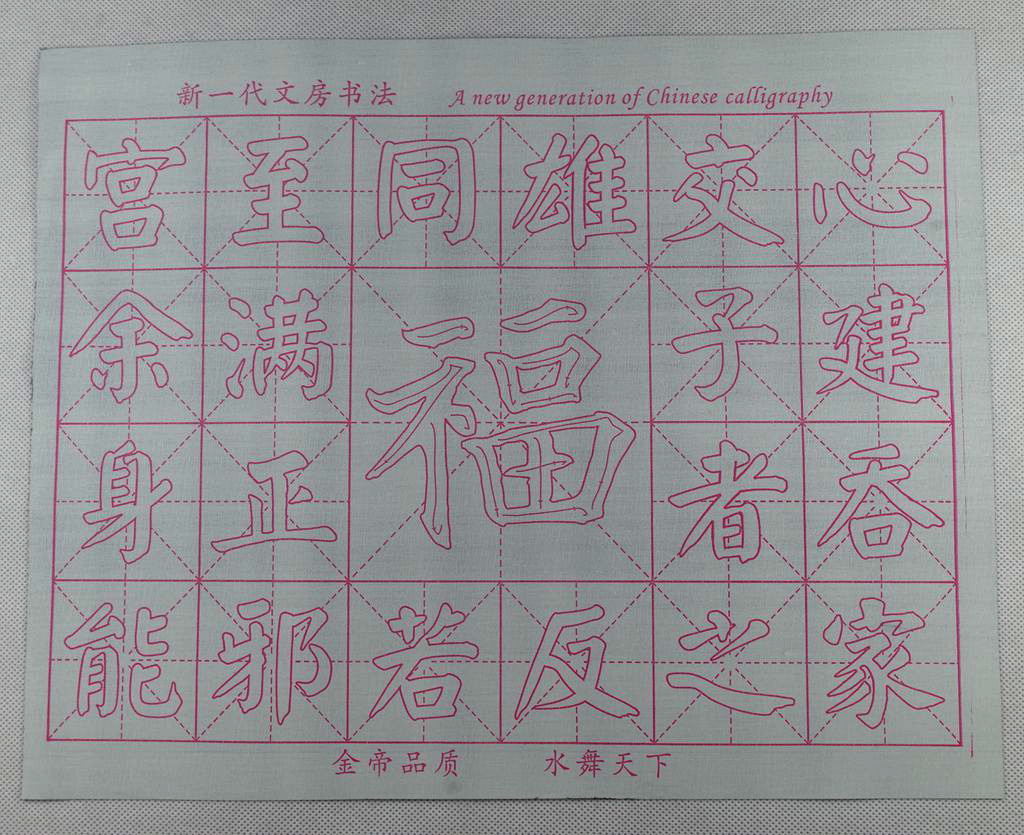 新一代文房书法 A new generation of Chinese calligraphy
宫至同雄交心
余满福子建
身正者吞
能邪若反之家
金帝品质 水舞天下